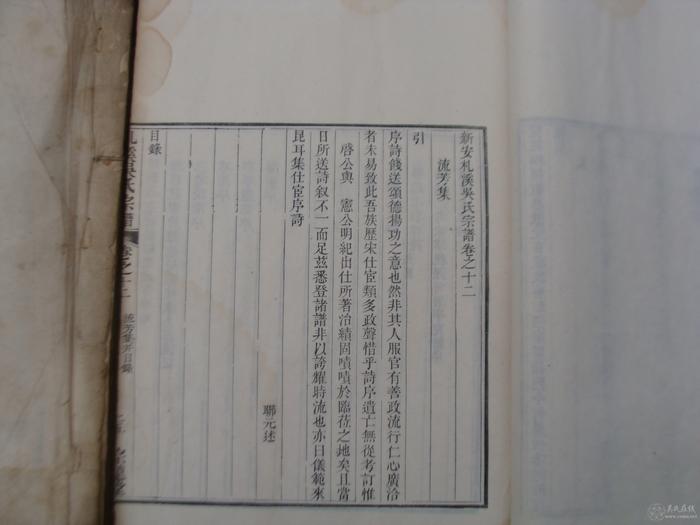 新安札溪吳氏宗譜卷之十二
流芳集
引
序詩餞送頌德揚功之意也然非其人服官有善政流行仁心廣洽
者未易致此吾族歷宋仕宦類多政聲惜乎詩序遺亡無從考訂惟
啓公與 憲公明紀出仕所著治績固嘖嘖於臨莅之地矣且當
日所送詩叙不一而足茲悉登諸譜非以誇耀時流也亦曰儀範來
昆耳集仕宦序詩
聯元述
目錄
札溪吳氏宗譜 卷之十二 流芳集引目錄
吳氏在线